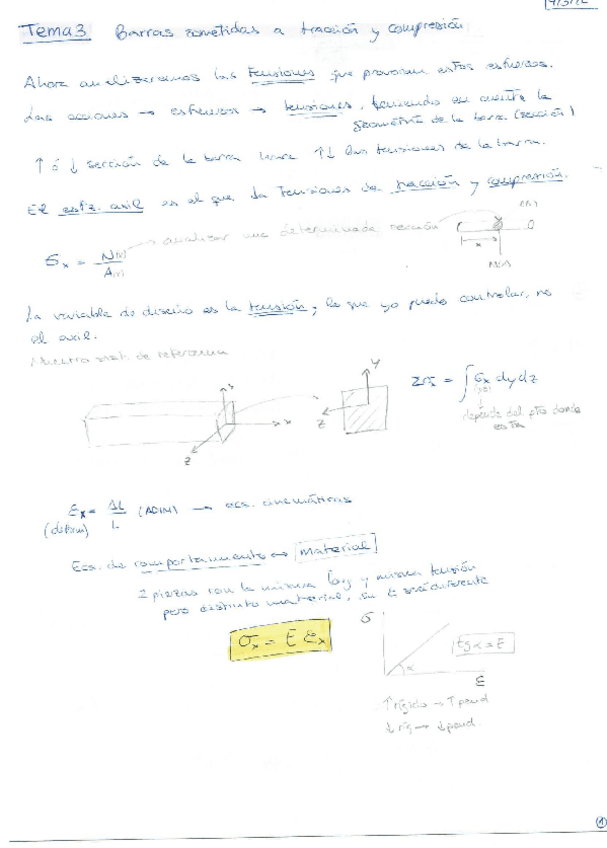 Tema 3 Barras sometidas a tracción y compresión
Ahora analizaremos las tensiones que provocan estos esfuerzos.
Las acciones → esfuerzos → tensiones, teniendo en cuenta la
geometría de la barra (sección)
↑ ó ↓ sección de la barra ↑↓ las tensiones de la barra.
El esfz. axil es el que da tensiones de tracción y compresión.
σx = N(x) / A(x) → analizar una determinada sección
x
La variable de diseño es la tensión, lo que yo puedo controlar, no
el axil.
Nuestro sist. de referencia
y
x
z
y
z
= ∫ σx dy dz
depende del pto donde
estás
εx = ΔL / L (ADIM) → ecs. cinemáticas
Ecs. de comportamiento → Material
2 piezas con la misma long y misma tensión
pero distinto material, su ε será diferente
σx = E εx
σ
tg α = E
α
ε
↑ rígido → ↑ pend
↓ ríg → ↓ pend.
1